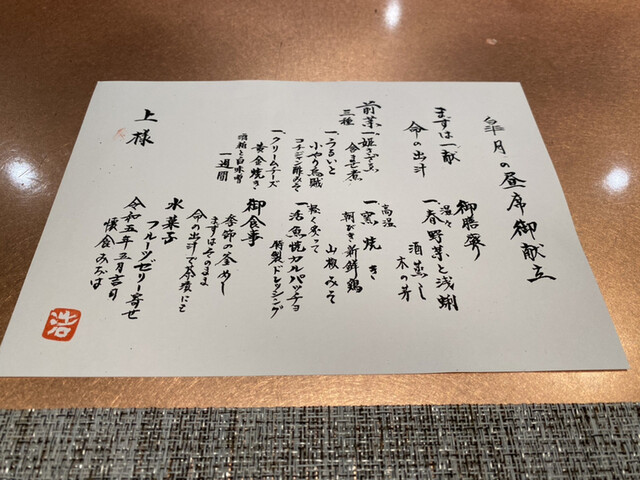 皐月の昼席御献立
まずは一献
命の出汁
前菜
三種
一、姫さざえ
含ませ煮
一、うるいと
小やり烏賊
コチジャン酢みそ
一、クリームチーズ
黄金焼き
酒粕と白味噌
一週間
御膳菜
温々
一、春野菜と浅蜊
酒蒸し
木の芽
高温
一、窯焼き
朝びき新鮮鶏
山椒みそ
軽く炙って
一、活魚慌カルパッチョ
特製ドレッシング
御食事
季節の釜めし
まずはそのまま
命の出汁で茶漬にて
水菓子
フルーツゼリー寄せ
令和五年五月三日
懐食みずは
上様
浩